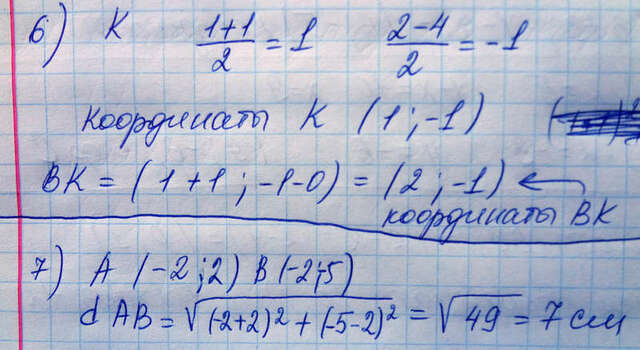 6) K (1+1)/2 = 1 (2-4)/2 = -1
координаты K (1; -1)
BK = (1+1; -1-0) = (2; -1) ←
координаты BK
7) A (-2; 2) B (-2; 5)
d AB = √((-2+2)² + (-5-2)²) = √49 = 7 см